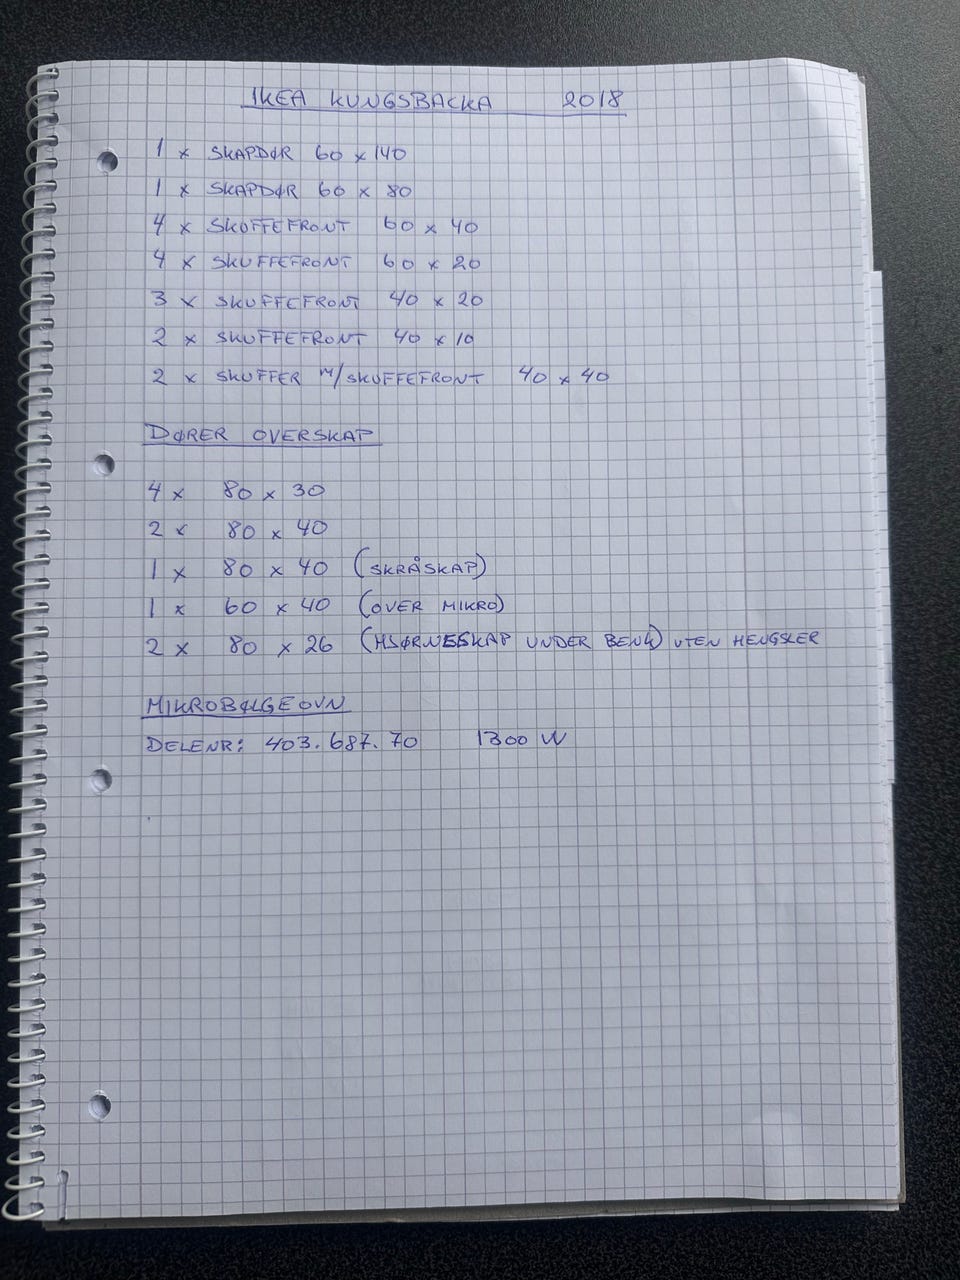 IKEA KUNGSBACKA 2018
1 x SKAPDØR 60 x 140
1 x SKAPDØR 60 x 80
4 x SKUFFEFRONT 60 x 40
4 x SKUFFEFRONT 60 x 20
3 x SKUFFEFRONT 40 x 20
2 x SKUFFEFRONT 40 x 10
2 x SKUFFER M/SKUFFEFRONT 40 x 40
DØRER OVERSKAP
4 x 80 x 30
2 x 80 x 40
1 x 80 x 40 (SKRÅSKAP)
1 x 60 x 40 (OVER MIKRO)
2 x 80 x 26 (HJØRNESKAP UNDER BENK) UTEN HENGSLER
MIKROBØLGEOVN
DELENR: 403.687.70 1300 W